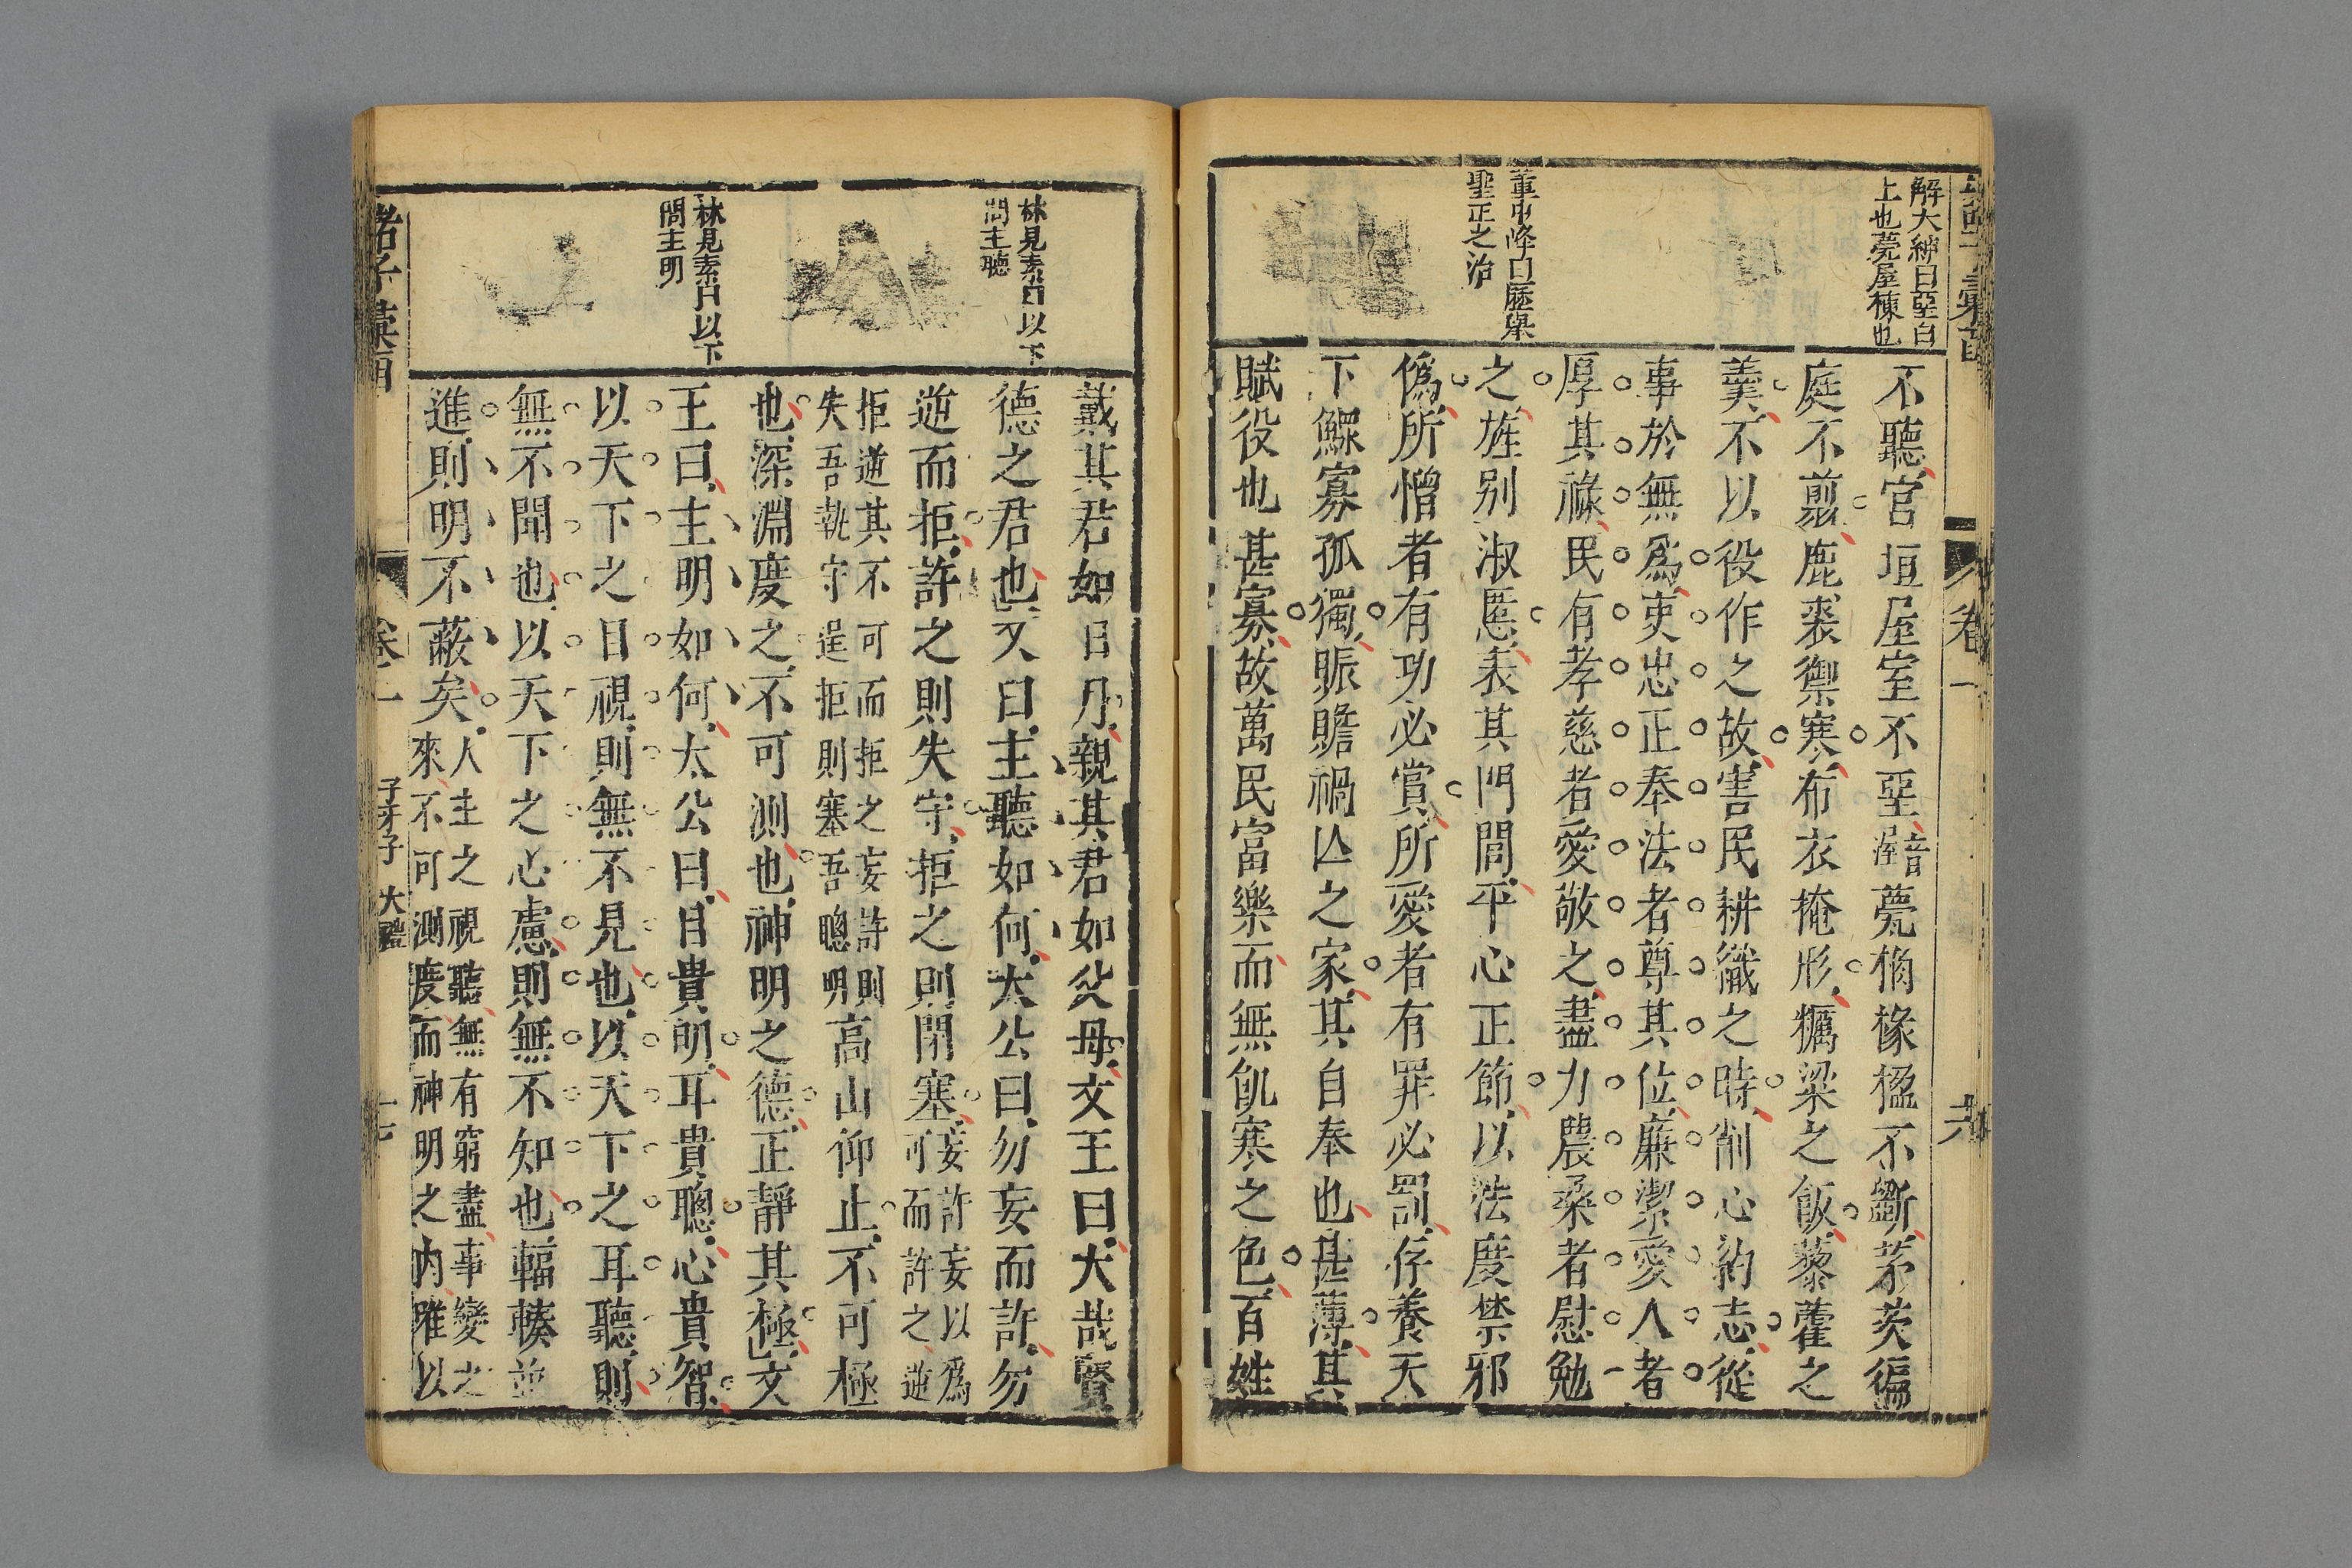 解大紳曰堊白
上也甍屋棟也
董中峰曰歷舉
聖正之治
不聽宮垣屋室不堊音渥甍桷椽楹不斵茅茨徧
庭不剪鹿裘禦寒布衣掩形糲梁之飯藜藿之
羹不以役作之故害民耕織之時削心約志從
事於無爲吏忠正奉法者尊其位廉潔愛人者
厚其祿民有孝慈者愛敬之盡力農桑者慰勉
之旌别淑慝表其門閭平心正節以法度禁邪
僞所憎者有功必賞所愛者有罪必罰存養天
下鰥寡孤獨賑贍禍亾之家其自奉也甚薄其
賦役也甚寡故萬民富樂而無飢寒之色百姓
卷一
林見素曰以下
問主聽
林見素曰以下
問主明
戴其君如日月親其君如父母文王曰大哉賢
德之君也又曰主聽如何太公曰勿妄而許勿
逆而拒許之則失守拒之則閉塞妄許妄以爲
可而許之逆
拒逆其不可而拒之妄許則
失吾執守逞拒則塞吾聰明高山仰止不可極
也深淵度之不可測也神明之德正靜其極文
王曰主明如何太公曰目貴明耳貴聰心貴智
以天下之目視則無不見也以天下之耳聽則
無不聞也以天下之心慮則無不知也輻輳並
進則明不蔽矣人主之視聽無有窮盡事變之
來不可測度而神明之内雖以
諸子彙函
卷一
子牙子 大禮